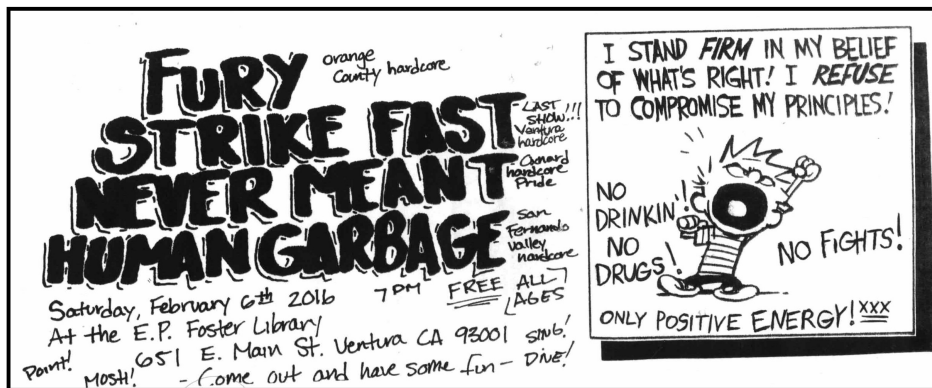 FURY
orange
County hardcore
STRIKE FAST
LAST
SHOW!!!
Ventura
hardcore
NEVER MEANT
Oxnard
hardcore
Pride
HUMAN GARBAGE
San
Fernando
Valley
hardcore
Saturday, February 6th 2016
7PM
FREE
ALL
AGES
At the E.P. Foster Library
651 E. Main St. Ventura CA 93001
Point!
MOSH!
- Come out and have some fun -
SING!
DIVE!
I STAND FIRM IN MY BELIEF
OF WHAT'S RIGHT! I REFUSE
TO COMPROMISE MY PRINCIPLES!
NO
DRINKIN'!
NO
DRUGS!
NO FIGHTS!
ONLY POSITIVE ENERGY! XXX